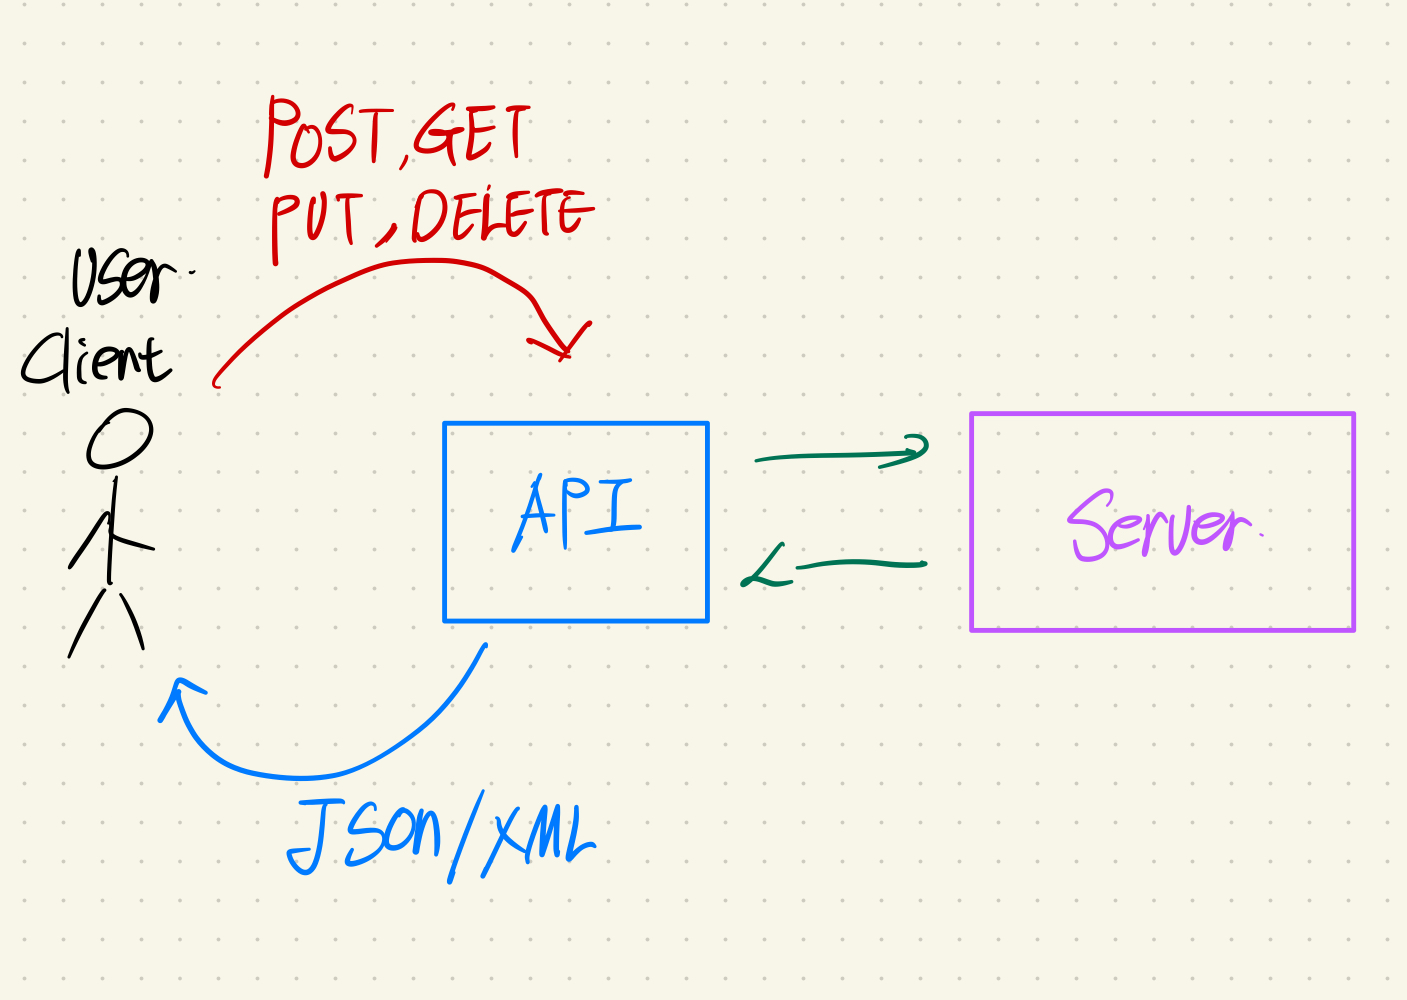 POST, GET
PUT, DELETE
User.
Client
API
Server.
Json/XML